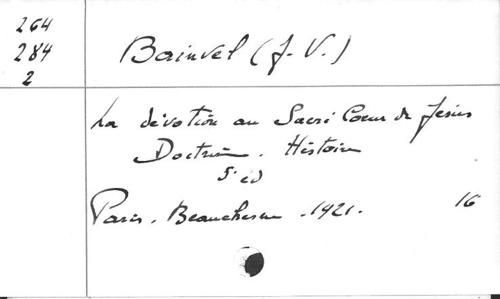 264
284
2
Bainvel (J.-V.)
La dévotion au Sacré Coeur de Jésus
Doctrine. Histoire
5e éd
Paris. Beauchesne. 1921. 16